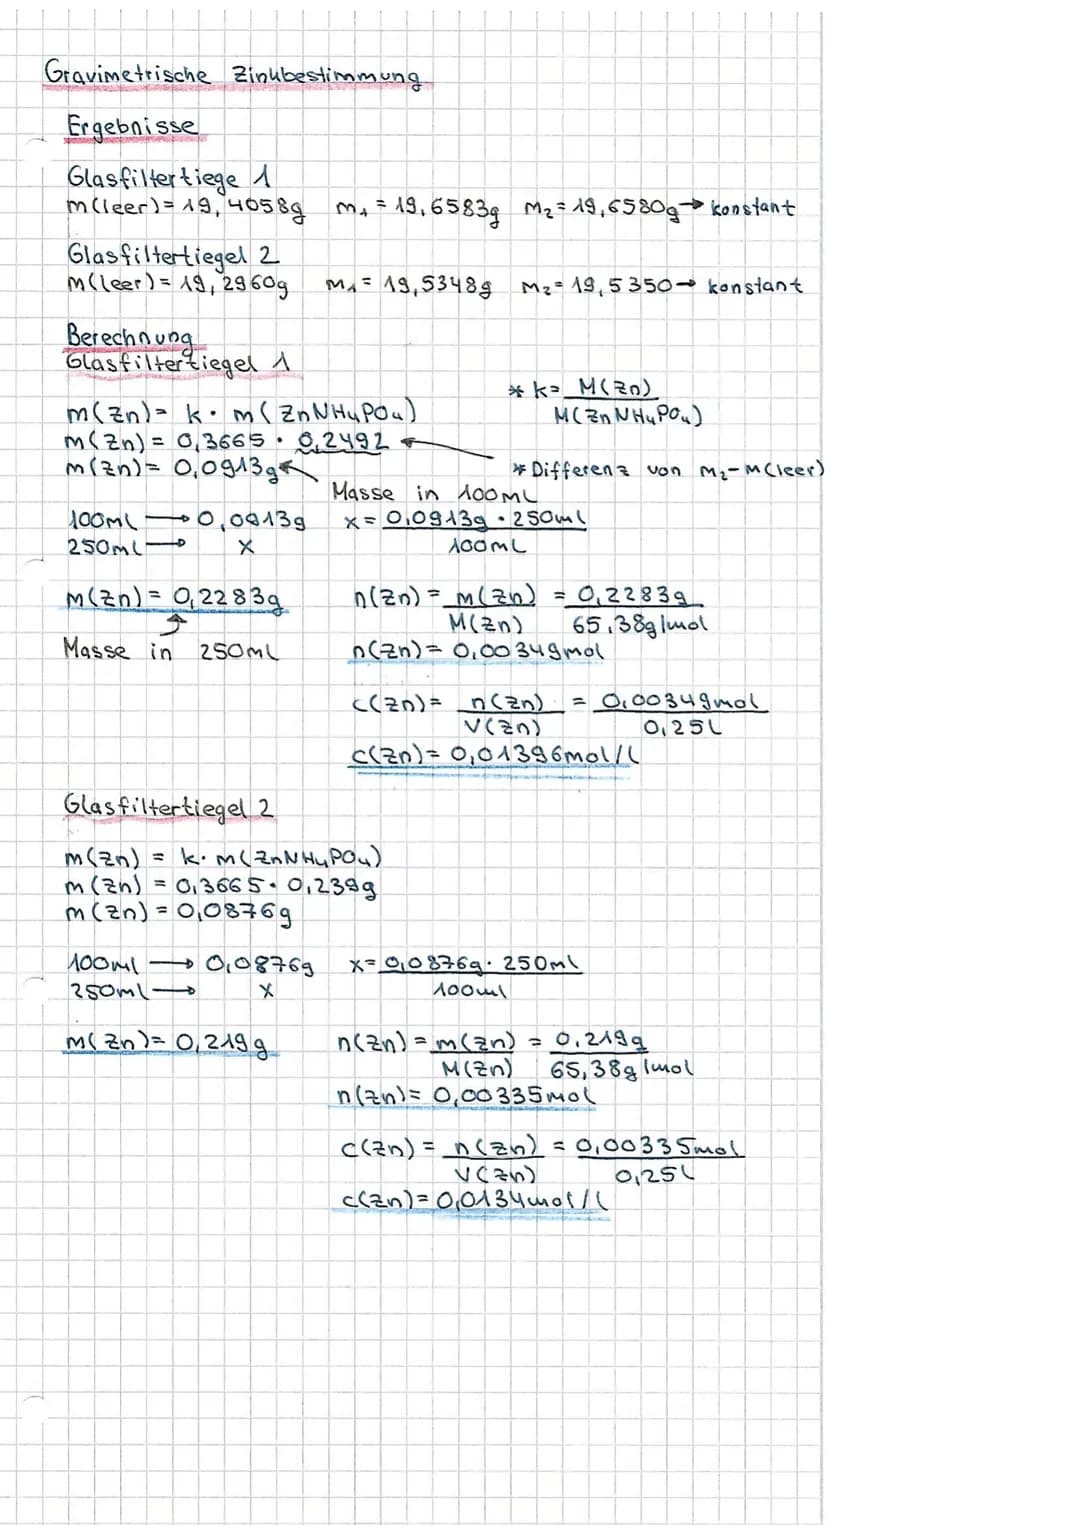 Gravimetrische Zinkbestimmung
Ergebnisse
Glasfiltertiege 1
m(leer)= 19,4058g m₁ = 19,6583g m₂= 19,6580g → konstant
Glasfiltertiegel 2
m(leer)= 19,2960g m₁ = 19,5348g m₂= 19,5350 → konstant
Berechnung
Glasfiltertiegel 1
* k= M(Zn)
M(ZnNH₄PO₄)
m(Zn)= k · m(ZnNH₄PO₄)
m(Zn) = 0,3665 · 0,2492
m(Zn)= 0,0913g
* Differenz von m₂-m(leer)
Masse in 100mL
100ml → 0,0913g x= 0,0913g · 250ml
250ml → x 100mL
m(Zn)= 0,2283g n(Zn) = m(Zn) = 0,2283g
M(Zn) 65,38g/mol
Masse in 250mL n(Zn)= 0,00349mol
c(Zn)= n(Zn) = 0,00349mol
V(Zn) 0,25L
c(Zn)= 0,01396mol/l
Glasfiltertiegel 2
m(Zn) = k · m(ZnNH₄PO₄)
m(Zn) = 0,3665 · 0,239g
m(Zn) = 0,0876g
100ml → 0,0876g x= 0,0876g · 250ml
250ml → x 100ml
m(Zn)= 0,219g n(Zn) = m(Zn) = 0,219g
M(Zn) 65,38g/mol
n(Zn)= 0,00335mol
c(Zn) = n(Zn) = 0,00335mol
V(Zn) 0,25l
c(Zn)= 0,0134mol/l